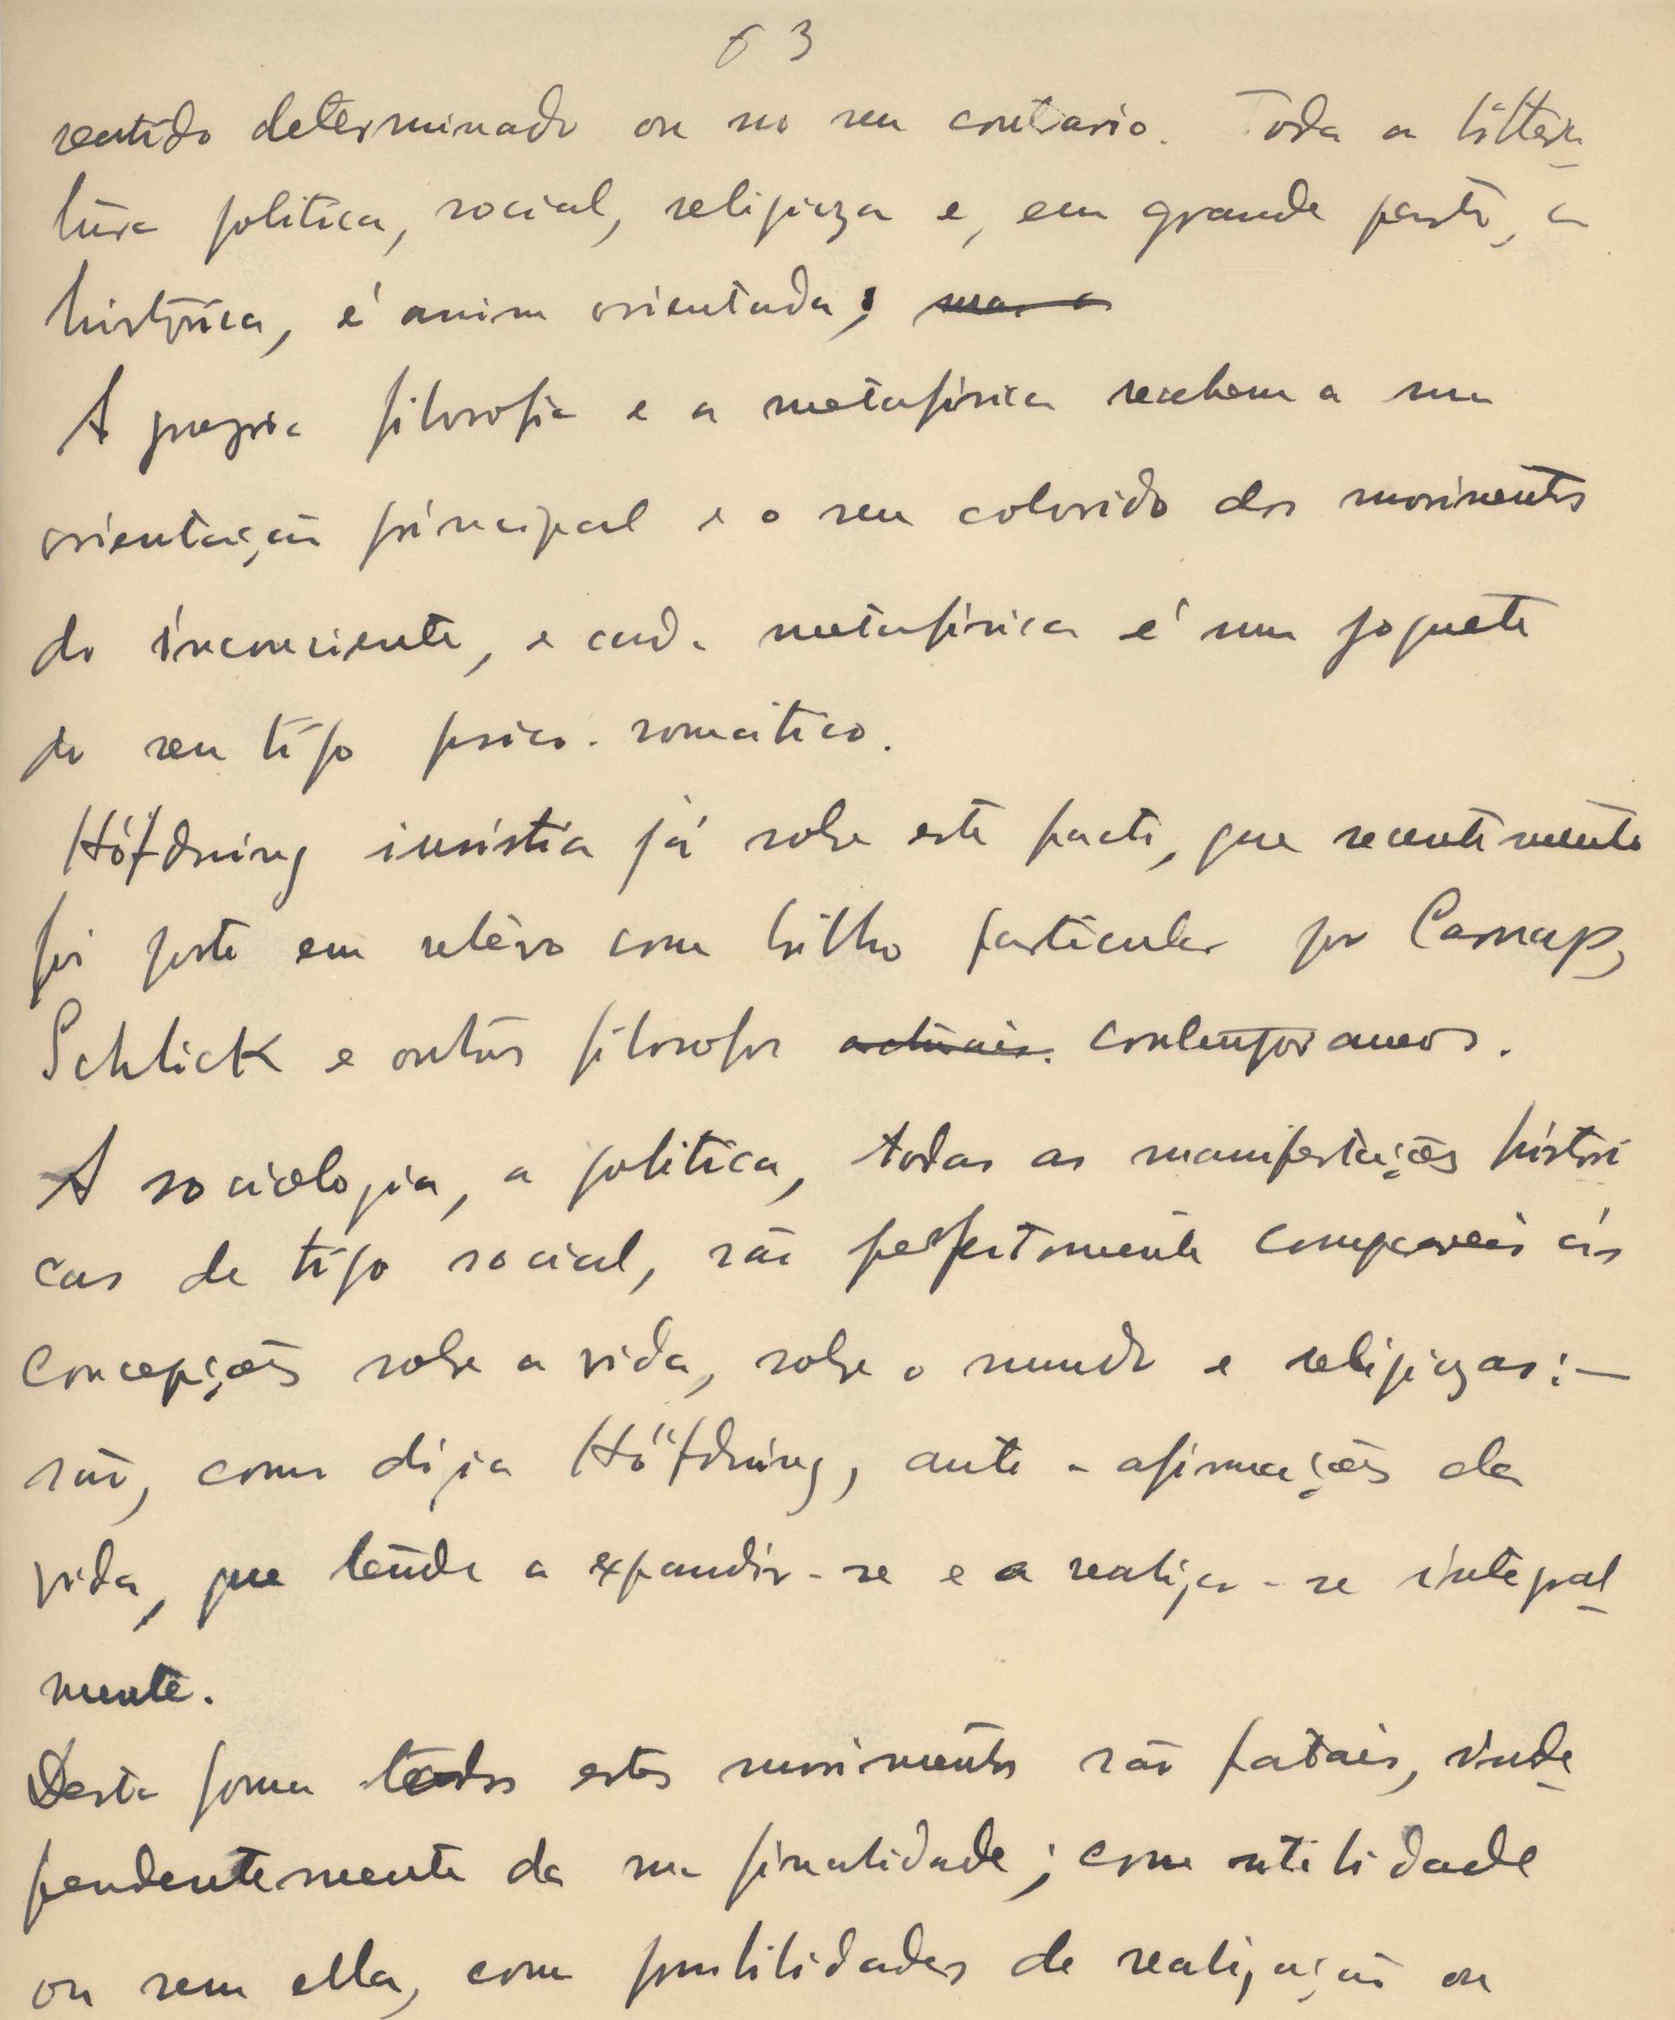 63
sentido determinado ou no seu contrario. Toda a littera
tura politica, social, religioza e, em grande parte, a
histórica, é assim orientada;
A propria filosofia e a metafísica recebem a sua
orientação principal e o seu colorido dos movimentos
do inconsciente, e cada metafísica é um joguete
do seu tipo psico-somático.
Höfdning insistia já sobre este facto, que recentemente
foi posto em relêvo com brilho particular por Carnap,
Schlick e outros filosofos actuais. contemporaneos.
A sociologia, a politica, todas as manifestações histori
cas de tipo social, são perfeitamente comparaveis ás
concepções sobre a vida, sobre o mundo e religiozas:—
são, como dizia Höfdning, ante-afirmações da
vida, que tende a expandir-se e a realizar-se integral
mente.
Desta forma todos estes movimentos são fatais, inde
pendentemente da sua finalidade; com utilidade
ou sem ella, com possibilidades de realização ou